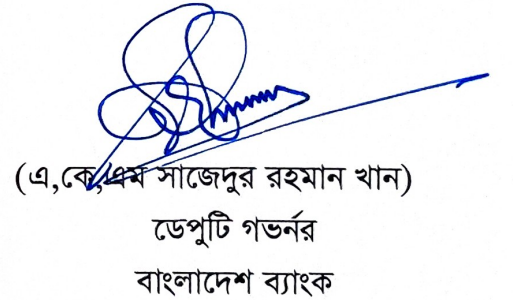 (এ,কে,এম সাজেদুর রহমান খান)
ডেপুটি গভর্নর
বাংলাদেশ ব্যাংক